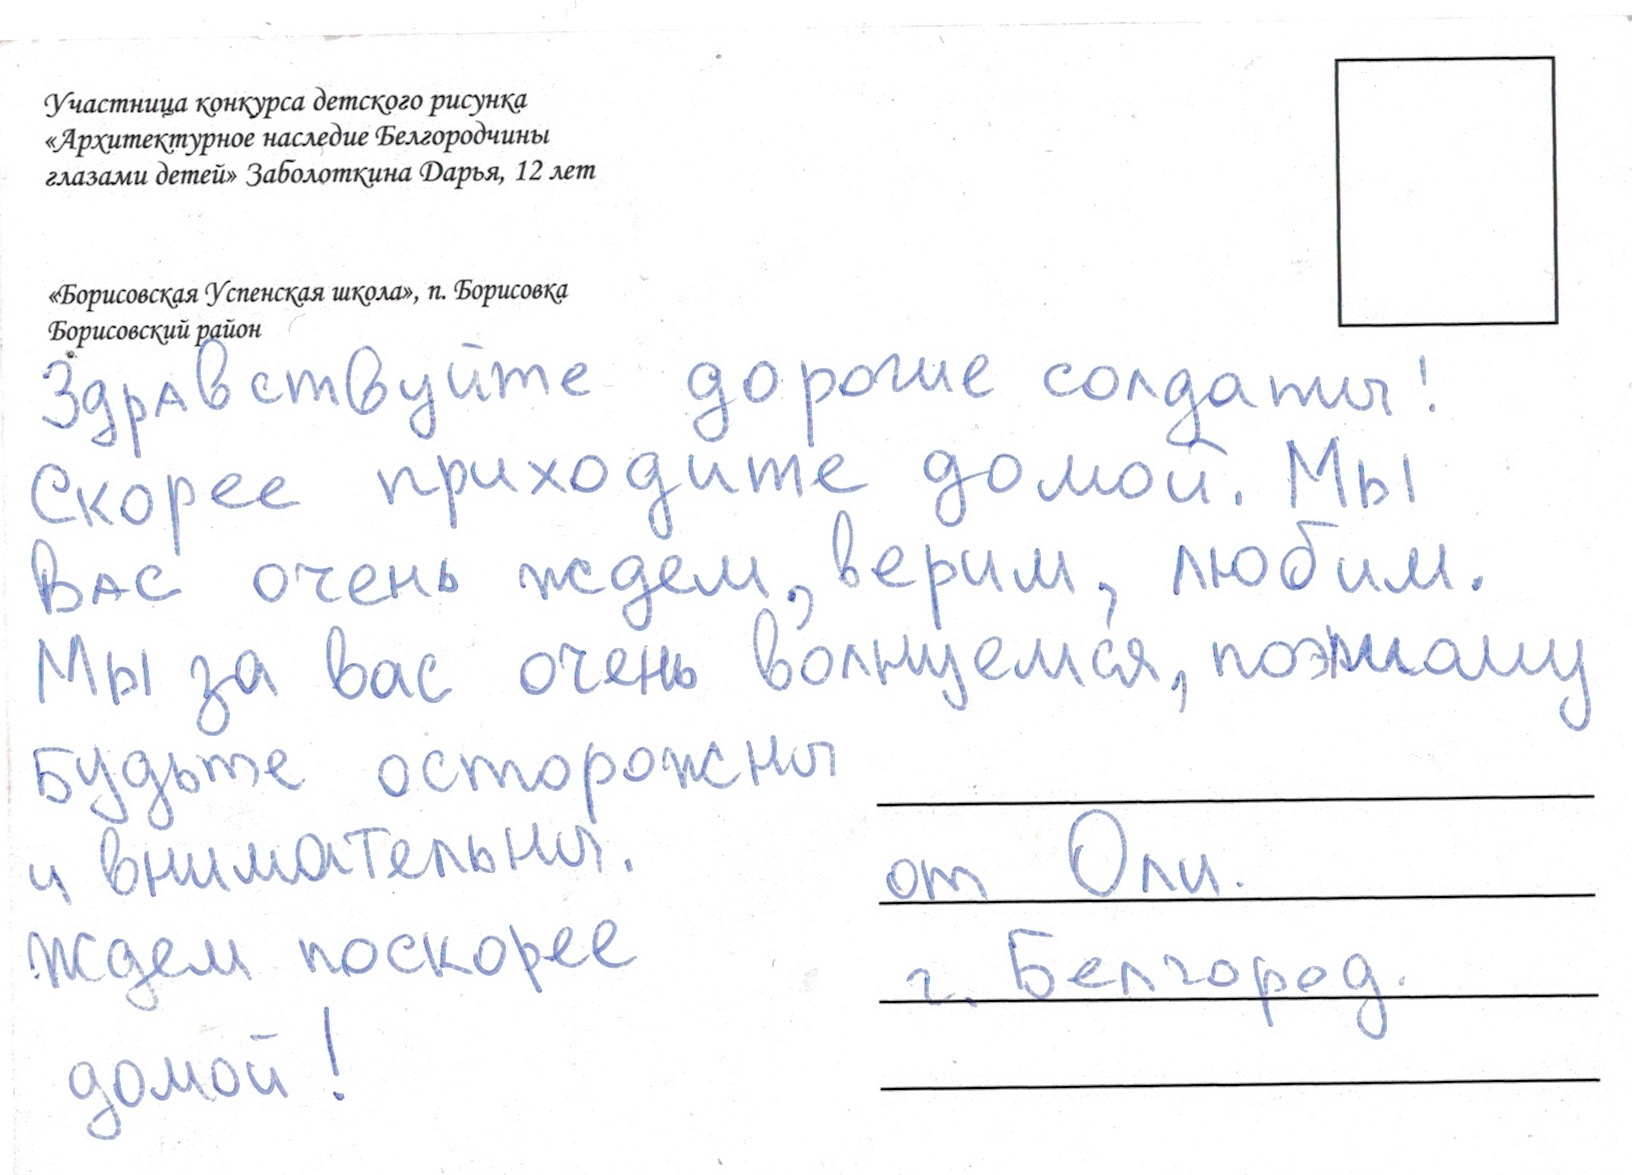 Участница конкурса детского рисунка
«Архитектурное наследие Белгородчины
глазами детей» Заболоткина Дарья, 12 лет
«Борисовская Успенская школа», п. Борисовка
Борисовский район
Здравствуйте дорогие солдаты!
Скорее приходите домой. Мы
Вас очень ждем, верим, любим.
Мы за вас очень волнуемся, поэтому
будьте осторожны
и внимательны.
Ждем поскорее
домой!
от Оли.
г. Белгород.